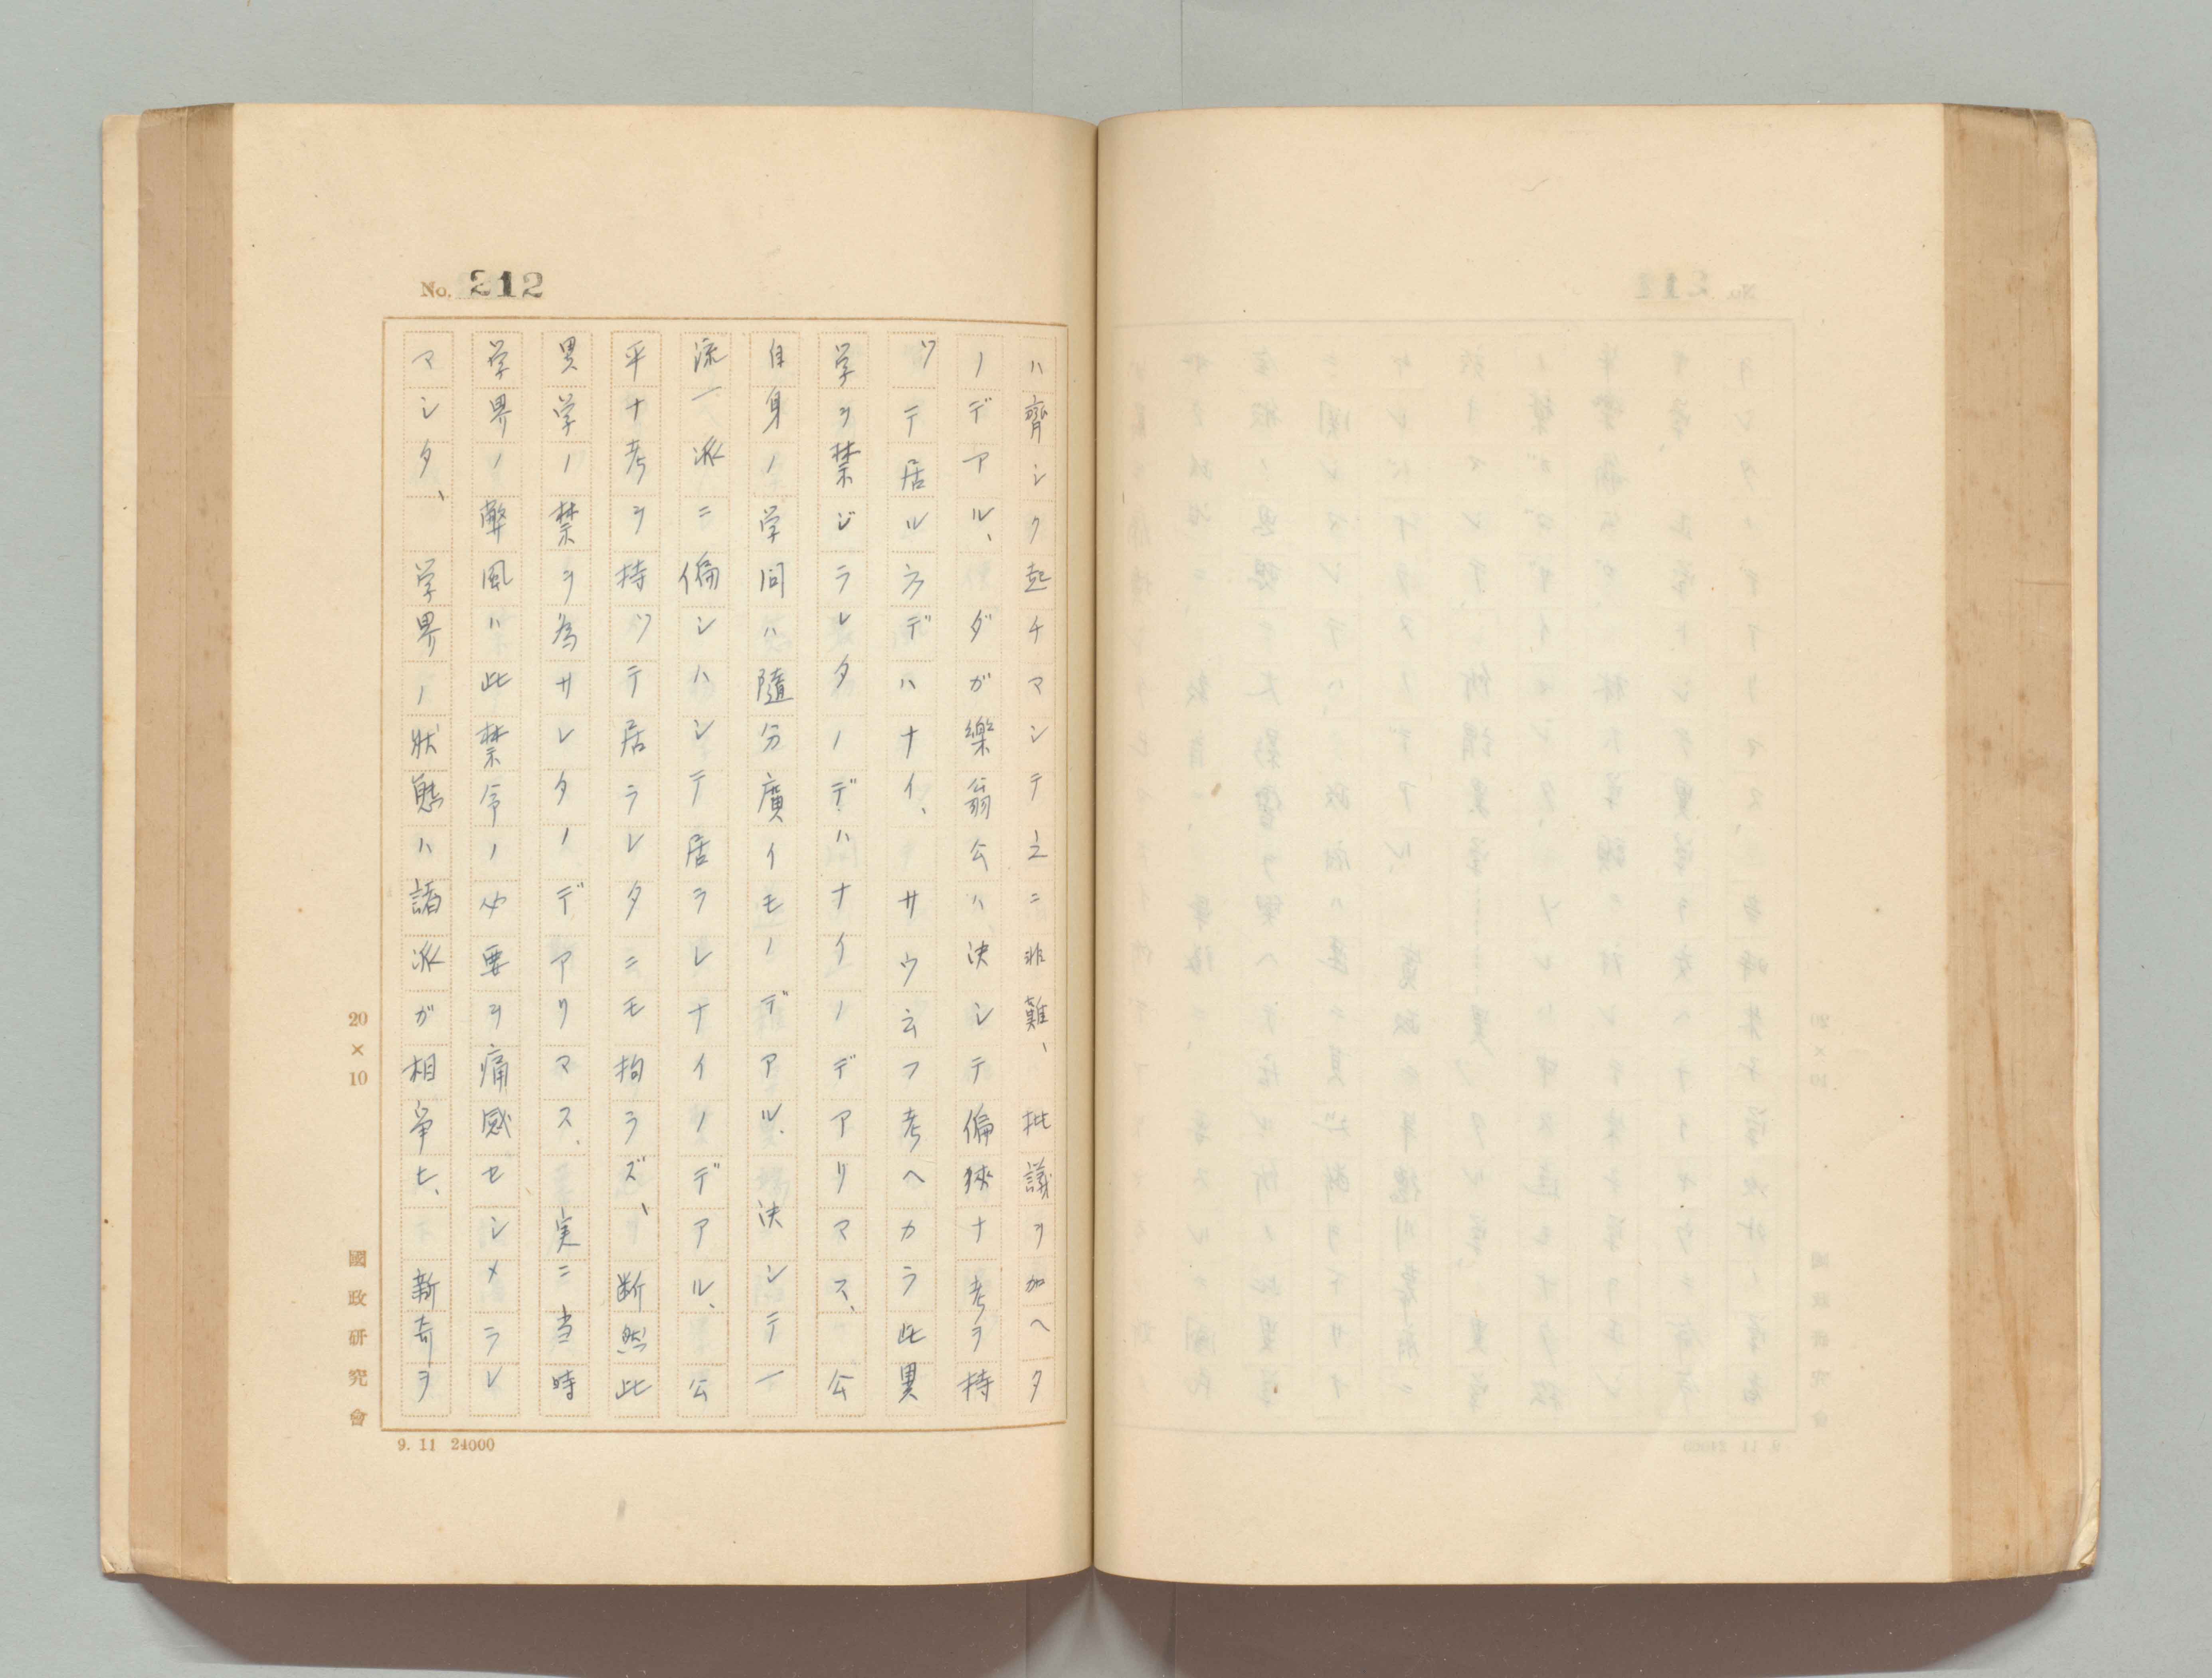 No. 212
ハ齊シク起チマシテ之ニ非難、批議ヲ加ヘタ
ノデアル、ダガ樂翁公ハ決シテ偏狹ナ考ヲ持
ツテ居ルネデハナイ、サウ云フ考ヘカラ此異
学ヲ禁ジラレタノデハナイノデアリマス、公
自身ノ学問ハ隨分廣イモノデアル、決シテ一
流一派ニ偏シハシテ居ラレナイノデアル、公
平ナ考ヲ持ツテ居ラレタニモ拘ラズ、断然此
異学ノ禁ヲ為サレタノデアリマス、実ニ当時
学界ノ弊風ハ此禁令ノ必要ヲ痛感セシメラレ
マシタ、学界ノ狀態ハ諸派ガ相争ヒ、新奇ヲ
20×10
國政研究會
9. 11 24000